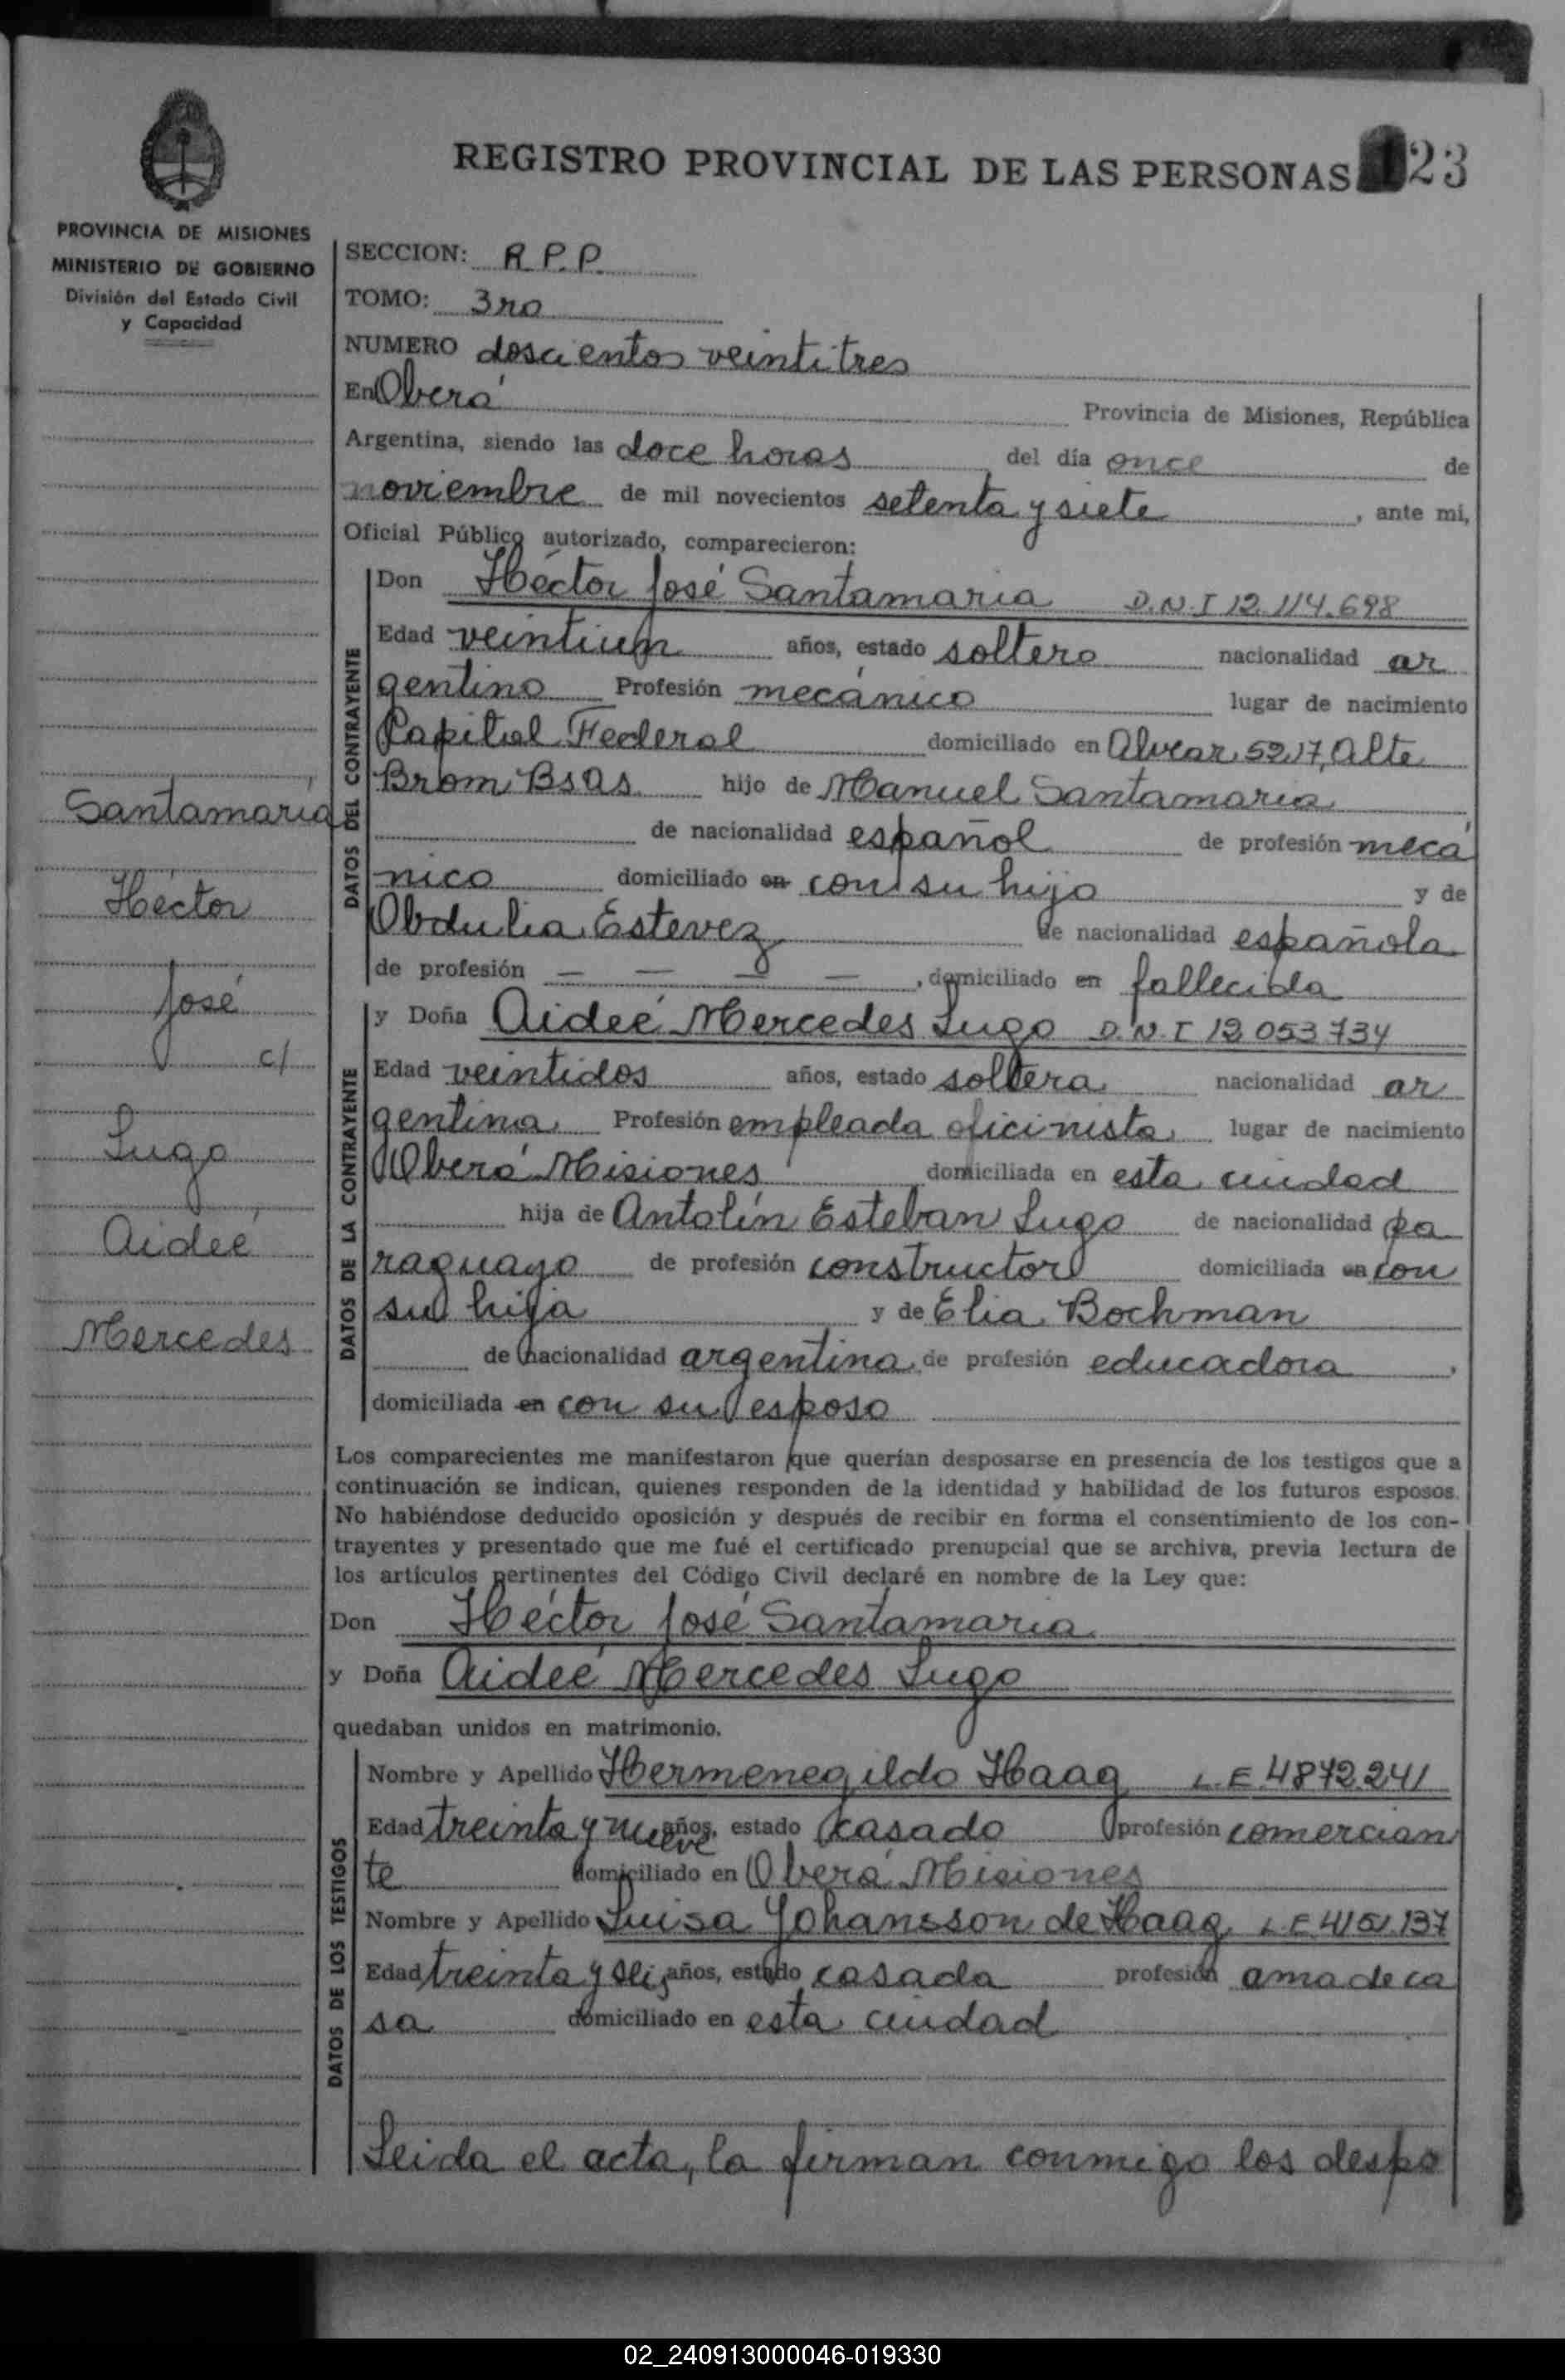 REGISTRO PROVINCIAL DE LAS PERSONAS 123
PROVINCIA DE MISIONES
MINISTERIO DE GOBIERNO
División del Estado Civil
y Capacidad
Santamaría
Héctor
José
c/
Lugo
Aideé
Mercedes
SECCION: R.P.P.
TOMO: 3ro
NUMERO doscientos veintitres
En Oberá Provincia de Misiones, República
Argentina, siendo las doce horas del día once de
noviembre de mil novecientos setenta y siete, ante mi,
Oficial Público autorizado, comparecieron:
DATOS DEL CONTRAYENTE
Don Héctor José Santamaria D.N.I 12.114.698
Edad veintiun años, estado soltero nacionalidad ar
gentino Profesión mecánico lugar de nacimiento
Capital Federal domiciliado en Alvear 5217, Alte
Brom Bs As hijo de Manuel Santamaria
de nacionalidad español de profesión mecá
nico domiciliado en con su hijo y de
Obdulia Estevez de nacionalidad española
de profesión — — — —, domiciliado en fallecida
DATOS DE LA CONTRAYENTE
y Doña Aideé Mercedes Lugo D.N.I 12 053 734
Edad veintidos años, estado soltera nacionalidad ar
gentina Profesión empleada oficinista lugar de nacimiento
Oberá Misiones domiciliada en esta ciudad
hija de Antolín Esteban Lugo de nacionalidad pa
raguayo de profesión constructor domiciliada en con
su hija y de Elia Bochman
de nacionalidad argentina de profesión educadora,
domiciliada en con su esposo
Los comparecientes me manifestaron que querían desposarse en presencia de los testigos que a
continuación se indican, quienes responden de la identidad y habilidad de los futuros esposos.
No habiéndose deducido oposición y después de recibir en forma el consentimiento de los con-
trayentes y presentado que me fué el certificado prenupcial que se archiva, previa lectura de
los artículos pertinentes del Código Civil declaré en nombre de la Ley que:
Don Héctor José Santamaria
y Doña Aideé Mercedes Lugo
quedaban unidos en matrimonio.
DATOS DE LOS TESTIGOS
Nombre y Apellido Hermenegildo Haag L.E 4872.241
Edad treinta y nueve años, estado casado profesión comercian
te domiciliado en Oberá Misiones
Nombre y Apellido Luisa Yohansson de Haag L.E 4151.137
Edad treinta y seis años, estado casada profesión ama de ca
sa domiciliado en esta ciudad
Leida el acta, la firman conmigo los despo
02_240913000046-019330